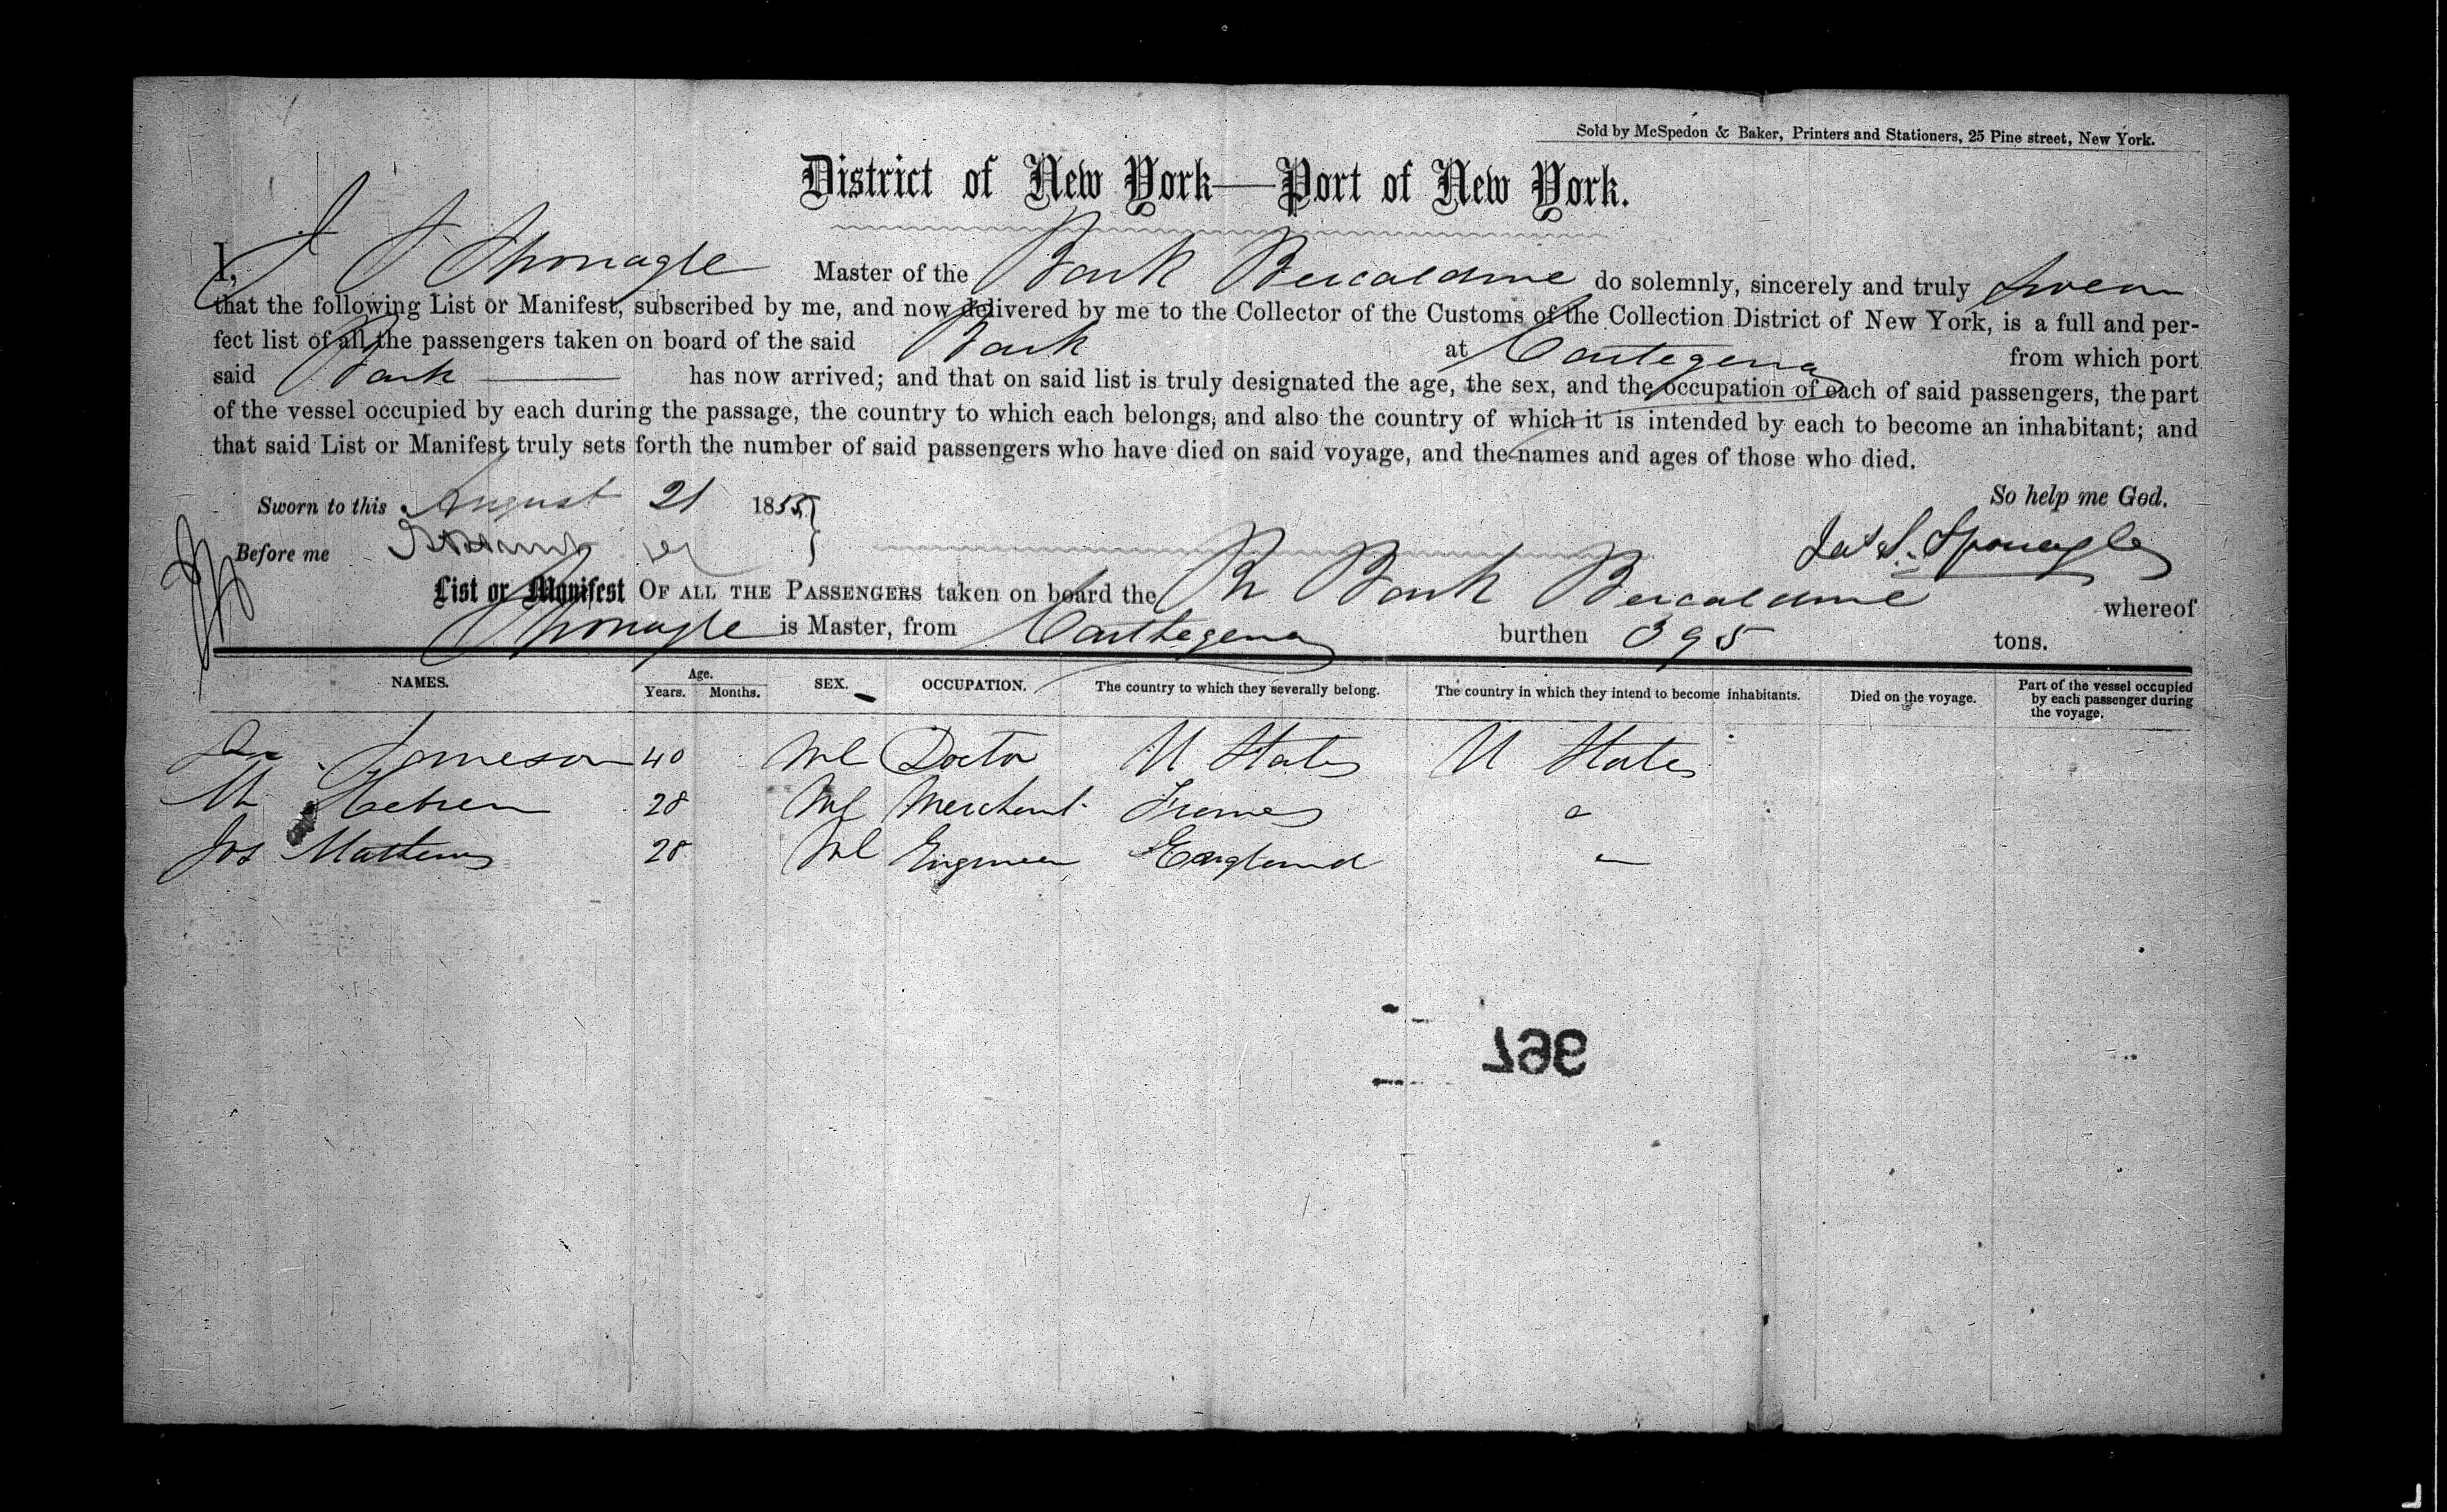 Sold by McSpedon & Baker, Printers and Stationers, 25 Pine street, New York.
District of New York—Port of New York.
I, J S Sponagle Master of the Bark Bercaldine do solemnly, sincerely and truly swear
that the following List or Manifest, subscribed by me, and now delivered by me to the Collector of the Customs of the Collection District of New York, is a full and per-
fect list of all the passengers taken on board of the said Bark at Cartegena from which port
said Bark has now arrived; and that on said list is truly designated the age, the sex, and the occupation of each of said passengers, the part
of the vessel occupied by each during the passage, the country to which each belongs, and also the country of which it is intended by each to become an inhabitant; and
that said List or Manifest truly sets forth the number of said passengers who have died on said voyage, and the names and ages of those who died.
Sworn to this August 21 1855 So help me God.
Before me Jas S. Sponagle
List or Manifest OF ALL THE PASSENGERS taken on board the Br Bark Bercaldine whereof
Sponagle is Master, from Carthegena burthen 395 tons.
NAMES. Age. Years. Months. SEX. OCCUPATION. The country to which they severally belong. The country in which they intend to become inhabitants. Died on the voyage. Part of the vessel occupied by each passenger during the voyage.
Dr Jameson 40 Ml Doctor U States U States
28 Ml Merchant "
Jos Mathews 28 Ml Engineer England "
796